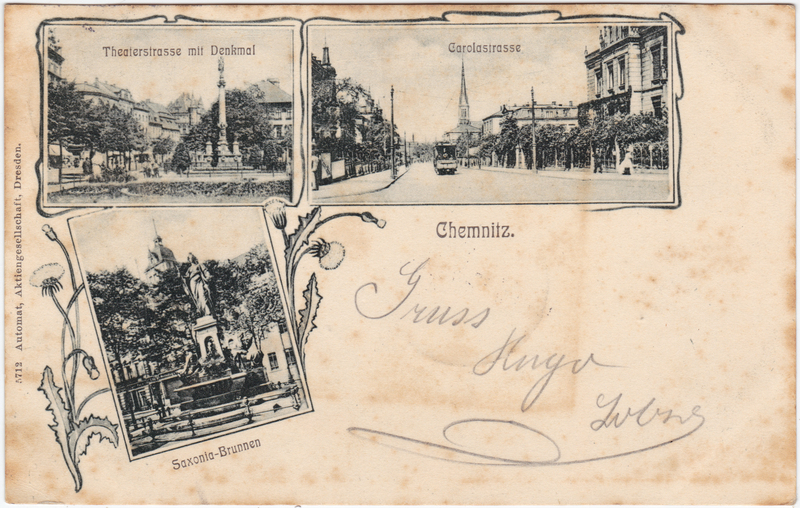 Theaterstrasse mit Denkmal
Carolastrasse
Chemnitz.
Gruss
Hugo
Saxonia-Brunnen
5712 Automat, Aktiengesellschaft, Dresden.